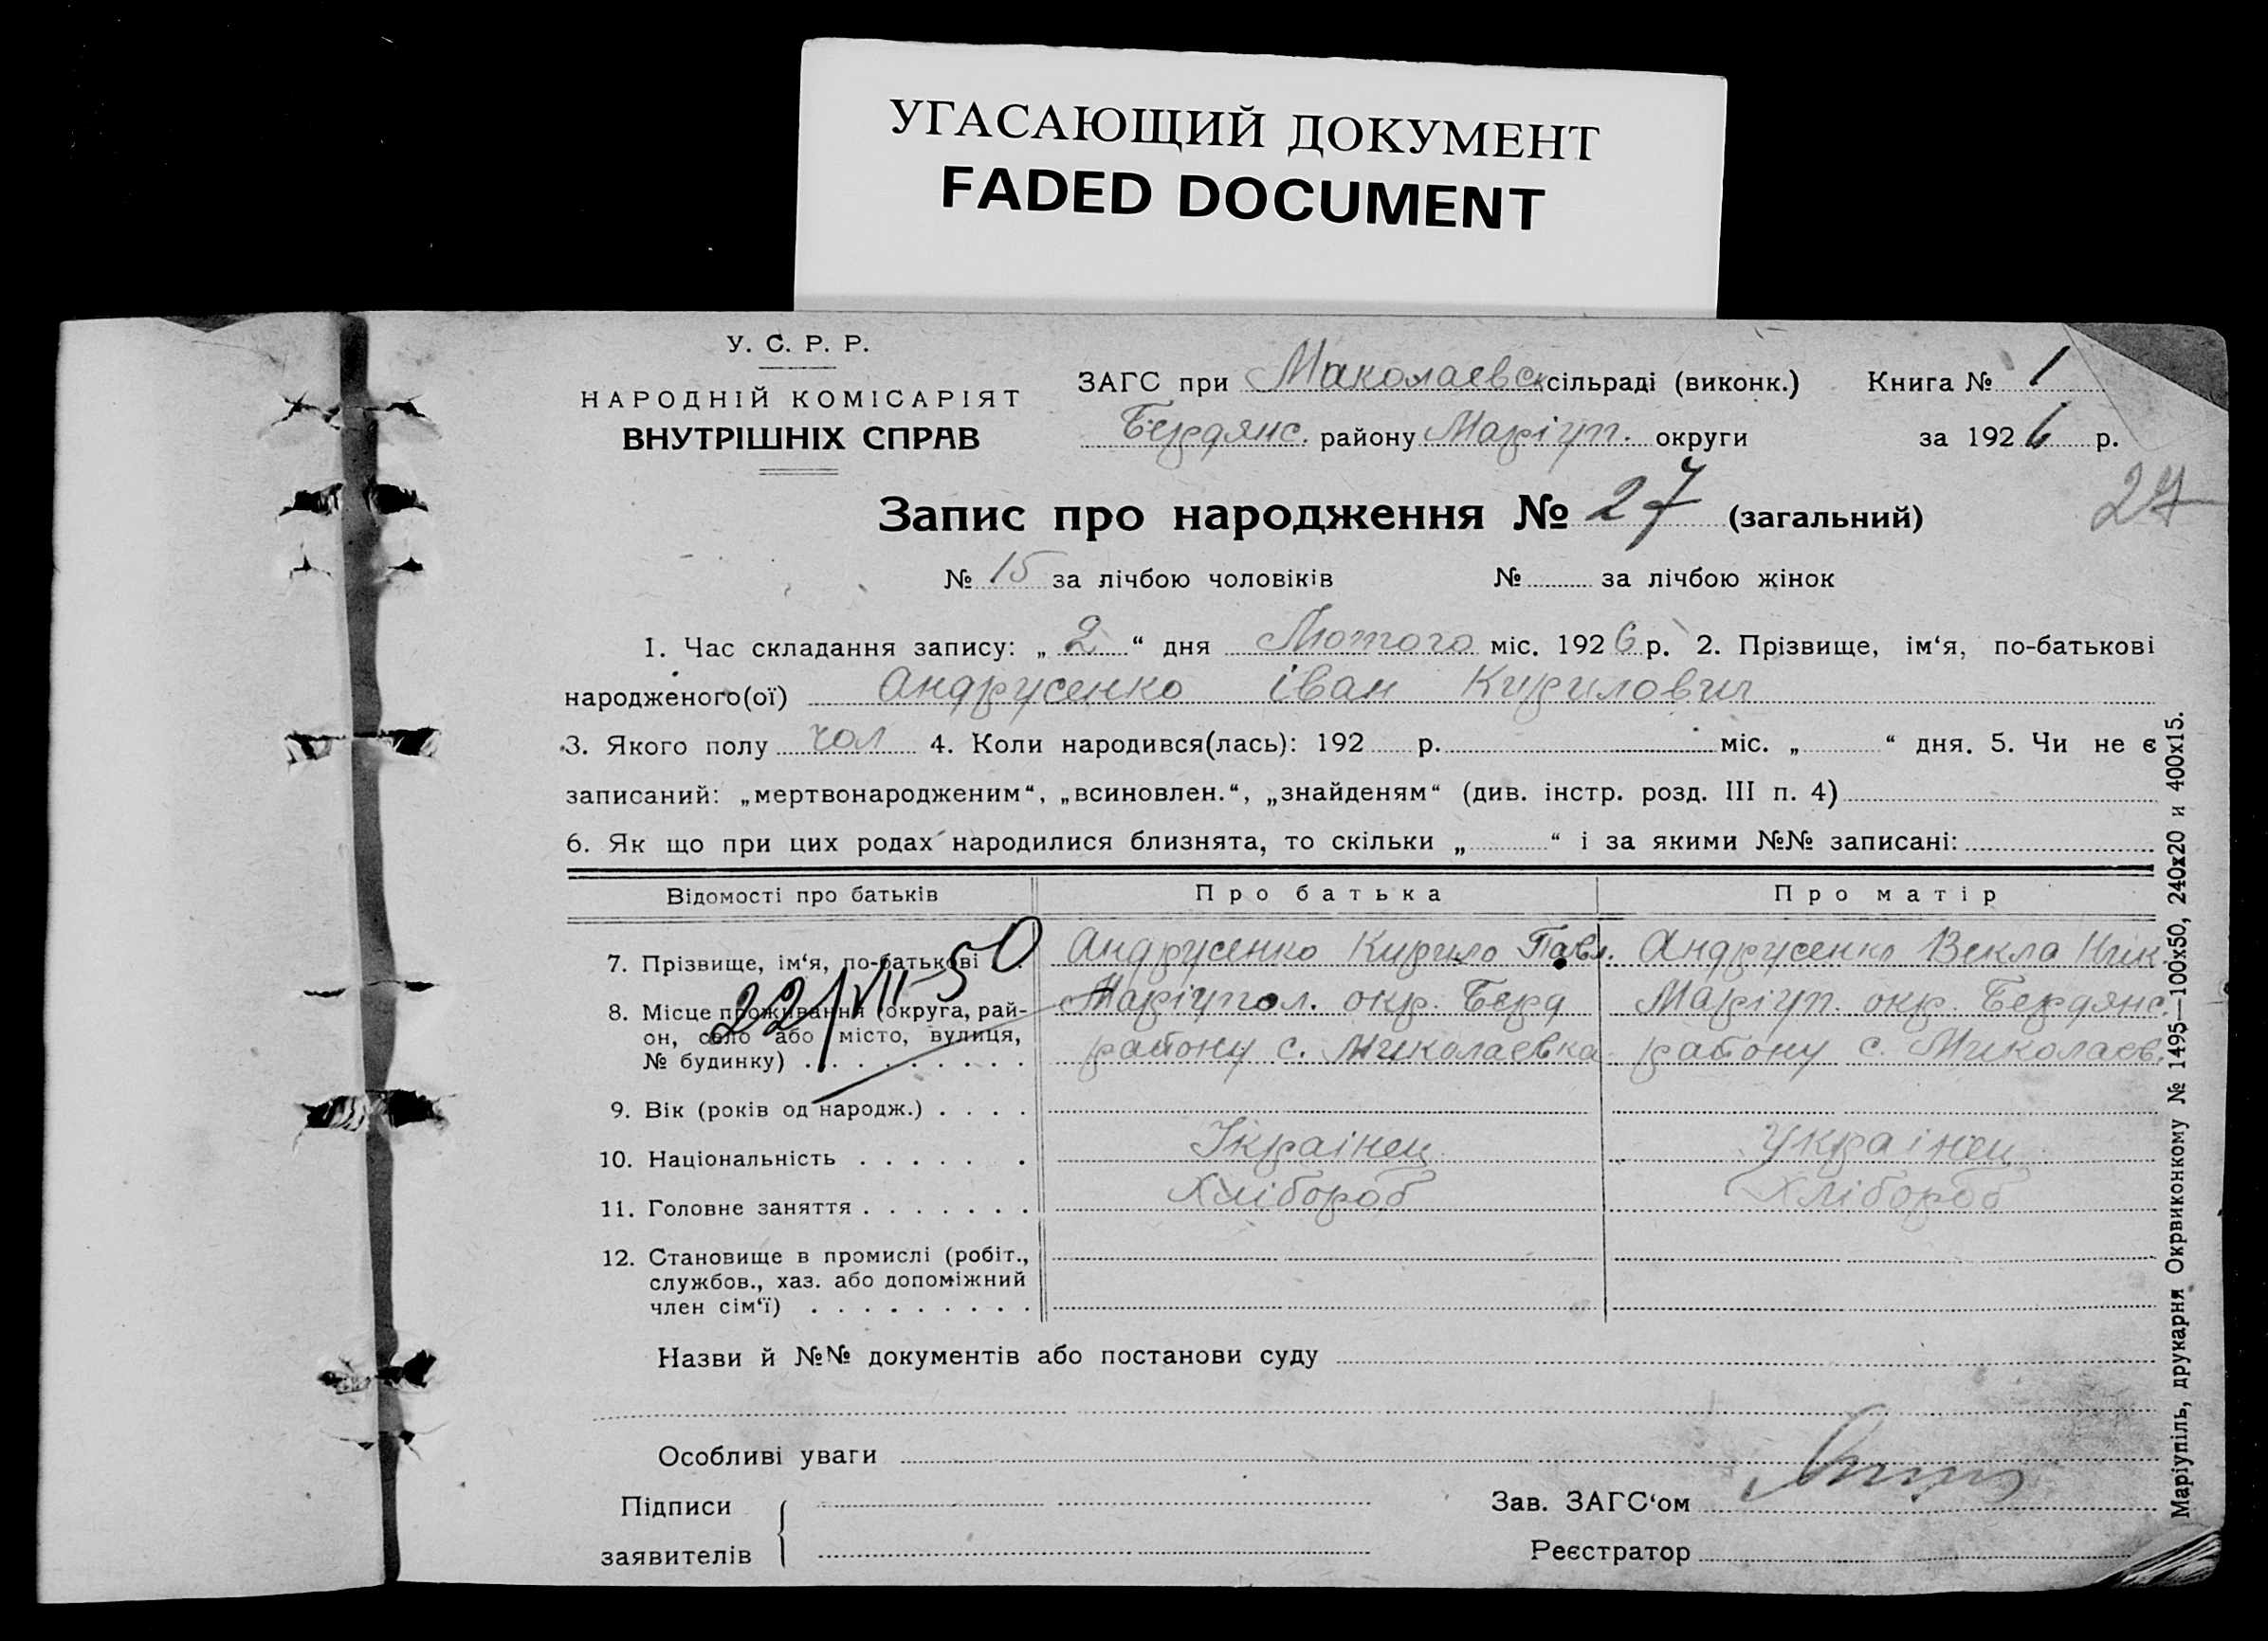 УГАСАЮЩИЙ ДОКУМЕНТ
FADED DOCUMENT
У. С. Р. Р.
НАРОДНІЙ КОМІСАРІЯТ
ВНУТРІШНІХ СПРАВ
ЗАГС при Миколаевск сільраді (виконк.) Книга № 1
Бердянс. району Маріуп. округи за 1926 р.
Запис про народження № 27 (загальний)
27
№ 15 за лічбою чоловіків № за лічбою жінок
1. Час складання запису: „ 2 “ дня Лютого міс. 1926 р. 2. Прізвище, ім‘я, по-батькові
народженого(ої) Андрусенко іван Кирилович
3. Якого полу чол 4. Коли народився(лась): 192 р. міс. „ “ дня. 5. Чи не є
записаний: „мертвонародженим“, „всиновлен.“, „знайденям“ (див. інстр. розд. III п. 4)
6. Як що при цих родах народилися близнята, то скільки „ “ і за якими №№ записані:
Відомості про батьків Про батька Про матір
7. Прізвище, ім‘я, по-батькові Андрусенко Кирило Павл. Андрусенко Векла Ник.
22/VII-50
8. Місце проживання (округа, рай- Маріупол. окр. Берд Маріуп. окр. Бердянс.
он, село або місто, вулиця, району с. Миколаевка району с. Миколаев.
№ будинку)
9. Вік (років од народж.)
10. Національність Україінец Україінец
11. Головне заняття Хлібороб Хлібороб
12. Становище в промислі (робіт.,
службов., хаз. або допоміжний
член сім‘ї)
Назви й №№ документів або постанови суду
Особливі уваги
Підписи
заявителів
Зав. ЗАГС‘ом
Реєстратор
Маріупіль, друкарня Окрвиконкому № 1495—100х50, 240х20 и 400х15.